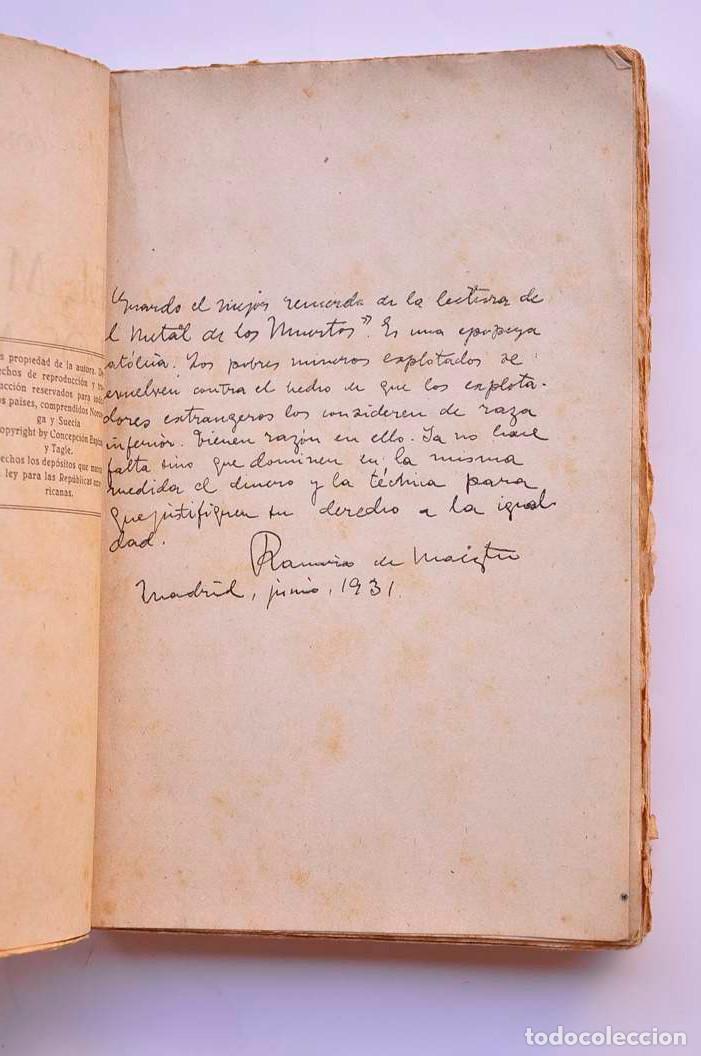 s propiedad de la autora.
echos de reproducción y
ucción reservados para
os países, comprendidos Norue
ga y Suecia
opyright by Concepción Espina
y Tagle.
echos los depósitos que marca
ley para las Repúblicas ame
ricanas.
Guardo el mejor recuerdo de la lectura de
l Metal de los Muertos". Es una epopeya
atólica. Los pobres mineros explotados se
evuelven contra el hecho de que los explota-
dores extrangeros los consideren de raza
inferior. Tienen razón en ello. Ya no hace
falta sino que dominen en la misma
medida el dinero y la técnica para
que justifiquen su derecho a la igual
dad.
Ramiro de Maeztu
Madrid, junio, 1931.
todocoleccion
todocoleccion.net